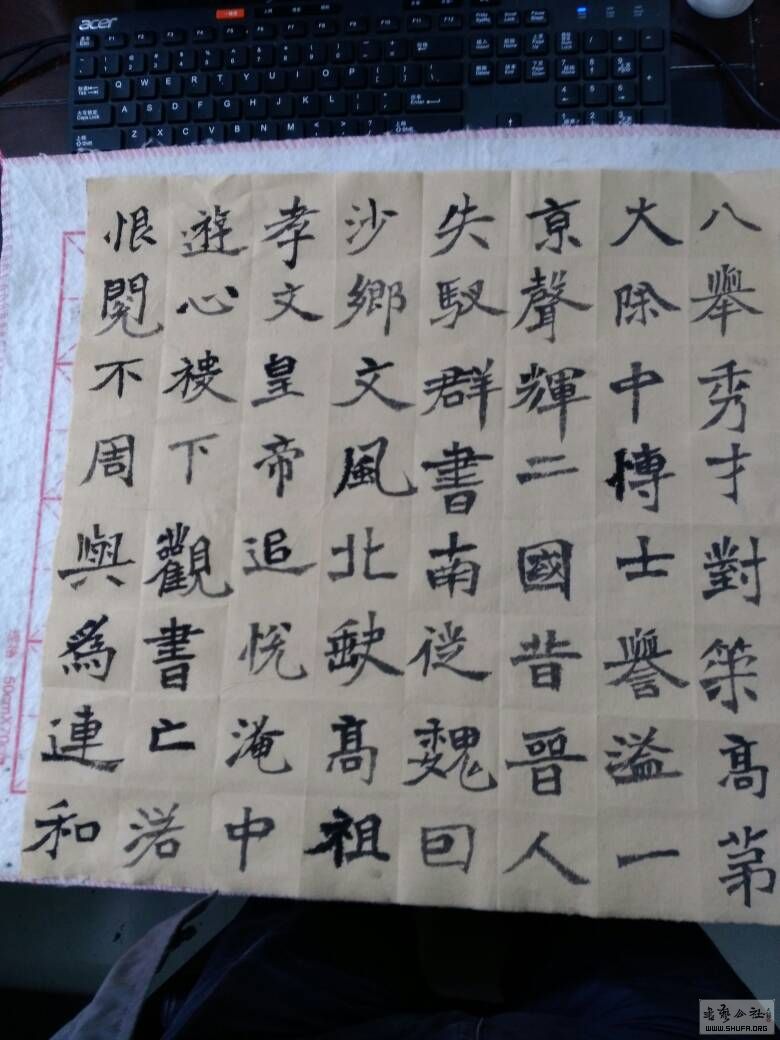 八舉秀才對策高苐
大除中愽士譽溢一
京聲輝二國昔晉人
失馭群書南從魏回
沙鄉文風北缺高祖
孝文皇帝追悅淹中
遊心稷下觀書亡落
恨閱不周與為連和
acer
Q W E R T Y U I O P
A S D F G H J K L
Caps Lock
Enter
50cmX70
WWW.SHUFA.ORG